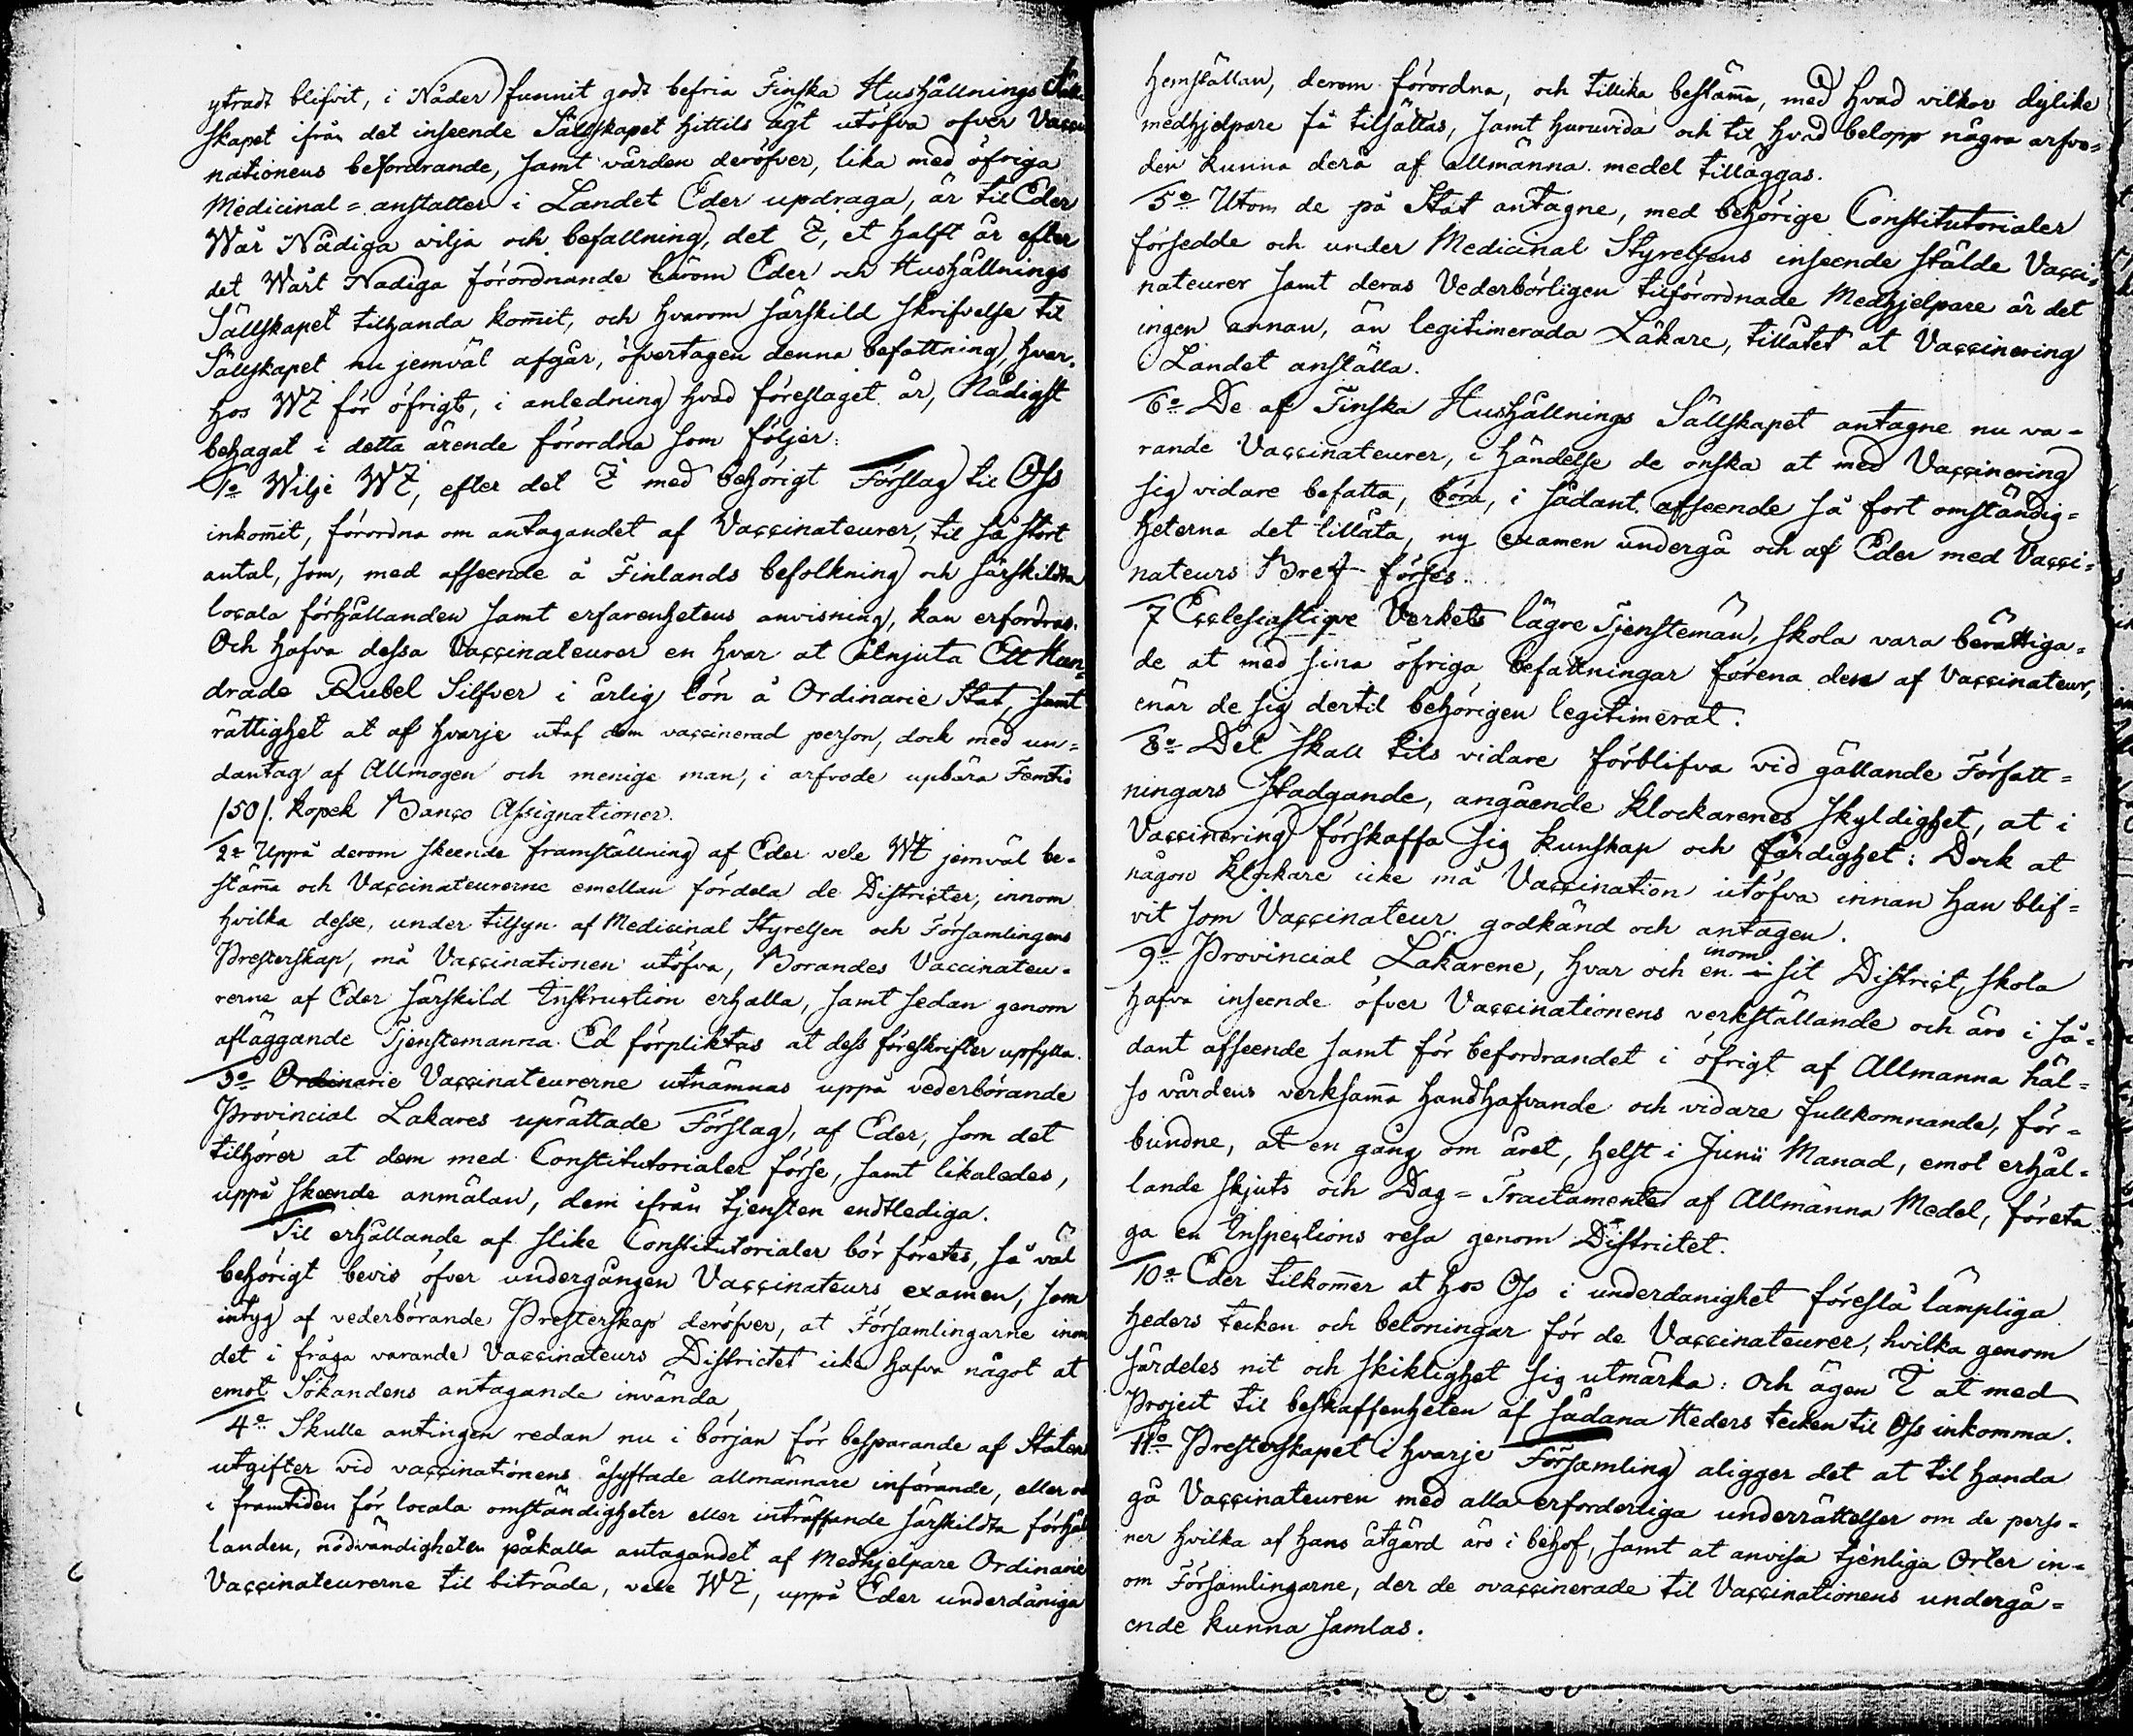 ytradt blifvit, i Nåder funnit godt befria Finska Hushållnings Säll
skapet ifrån det inseende Sällskapet hittils ägt utöfva öfver Vacci
nationens befordrande, samt vården deröfver, lika med öfriga
Medicinal=anstalter i Landet Eder updraga, är til Eder
Wår Nådiga vilja och befallning, det I, et halft år efter
det Wårt Nådiga förordnande härom Eder och Hushållnings
Sällskapet tilhanda kom̄it, och hvarom särskild skrifvelse til
Sällskapet nu jemväl afgår, öfvertagen denna befattning, hvar=
hos WI för öfrigt, i anledning hvad föreslaget är, Nådigst
behagat i detta ärende förordna som följer:
1o Wilje WI, efter det I med behörigt Förslag til Oss
inkom̄it, förordna om antagandet af Vaccinateurer, til så stort
antal, som, med afseende å Finlands befolkning och särskildta
locala förhållanden samt erfarenhetens anvisning, kan erfordras.
Och hafva dessa Vaccinateurer en hvar at åtnjuta Ett Hun=
drade Rubel Silfver i årlig lön å Ordinarie Stat, samt
rättighet at af hvarje utaf dem vaccinerad person, dock med un=
dantag af Allmogen och menige man, i arfvode upbära Femtio
/50/. kopek Banco Assignationer.
2o Uppå derom skeende framställning af Eder vele WI jemväl be=
stäm̄a och Vaccinateurerne emellan fördela de Districter, innom
hvilka desse, under tilsyn af Medicinal Styrelsen och Församlingens
Presterskap, må Vaccinationen utöfva, Börandes Vaccinateu=
rerne af Eder särskild Instruction erhålla, samt sedan genom
afläggande Tjenstemanna Ed förpliktas at dess föreskrifter upfylla.
3o Ordinarie Vaccinateurerne utnämnas uppå vederbörande
Provincial Läkares uprättade Förslag, af Eder, som det
tilhörer at dem med Constitutorialer förse, samt likaledes,
uppå skeende anmälan, dem ifrån tjensten endtlediga.
Til erhållande af slike Constitutorialer bör företes, så väl
behörigt bevis öfver undergången Vaccinateurs examen, som
intyg af vederbörande Presterskap deröfver, at Församlingarne inom
det i fråga varande Vaccinateurs Districtet icke hafva något at
emot Sökandens antagande invända
4o Skulle antingen redan nu i början för besparande af Staten
utgifter vid vaccinationens åsyftade allmännare införande, eller
i framtiden för locala omständigheter eller inträffande särskildta förhål
landen, nödvändigheten påkalla antagandet af Medhjelpare Ordinarie
Vaccinateurerne til biträde, vele WI, uppå Eder underdåniga
hemställan, derom förordna, och tillika bestäm̄a, med hvad vilkor dylike
medhjelpare få tilsättas, samt huruvida och til hvad belopp några arfvo=
den kunna dera af allmänna medel tilläggas.
5o Utom de på Stat antagne, med behörige Constitutorialer
försedde och under Medicinal Styrelsens inseende stälde Vacci=
nateurer samt deras Vederbörligen tilförordnade Medhjelpare är det
ingen annan, än legitimerada Läkare, tillåtet at Vaccinering
i Landet anställa.
6o De af Finska Hushållnings Sällskapet antagne nu va=
rande Vaccinateurer, i händelse de önska at med Vaccinering
sig vidare befatta, böra, i sådant afseende så fort omständig=
heterna det tillåta, ny examen undergå och af Eder med Vacci=
nateurs Bref förses.
7 Ecclesiastique Verkets lägre Tjenstemän, skola vara berättiga=
de at med sina öfriga befattningar förena den af Vaccinateur,
enär de sig dertil behörigen legitimerat.
8o Det skall tils vidare förblifva vid gällande Författ=
ningars stadgande, angående klockarenes skyldighet, at i
Vaccinering förskaffa sig kunskap och färdighet: Dock at
någon klockare icke må Vaccination utöfva innan han blif=
vit som Vaccinateur godkänd och antagen.
9o Provincial Läkarene, hvar och en inom sit District, skola
hafva inseende öfver Vaccinationens verkställande och äro i så=
dant afseende samt för befordrandet i öfrigt af Allmänna häl=
so vårdens verksam̄a handhafvande och vidare fullkomnande, för=
bundne, at en gång om året, helst i Junii Månad, emot erhål=
lande skjuts och Dag=Tractamente af Allmänna Medel, företa
ga en Inspections resa genom Districtet.
10o Eder tilkom̄er at hos Oss i underdånighet föreslå lämpliga
heders tecken och beloningar för de Vaccinateurer, hvilka genom
särdeles nit och skiklighet sig utmärka: Och ägen I at med
Project til beskaffenheten af sådana Heders tecken til Oss inkomma.
11o Presterskapet i hvarje Församling åligger det at til handa
gå Vaccinateuren med alla erforderliga underrättelser om de perso=
ner hvilka af hans åtgärd äro i behof, samt at anvisa tjenliga Orter in=
om Församlingarne, der de ovaccinerade til Vaccinationens undergå=
ende kunna samlas.